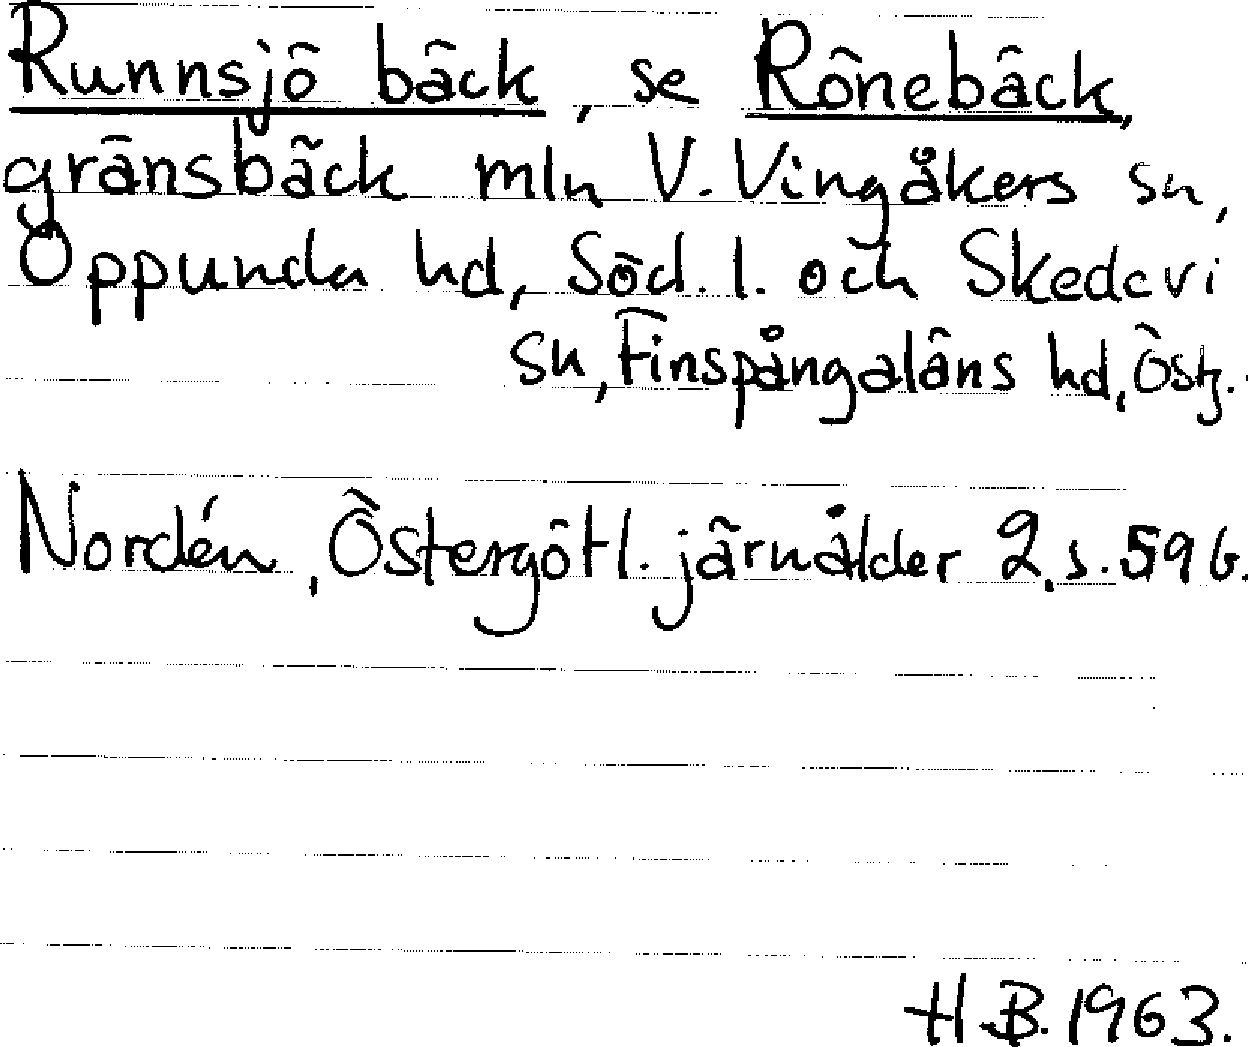 Runnsjö bäck, se Rönebäck,
gränsbäck mln V. Vingåkers sn,
Oppunda hd, Söd. l. och Skedevi
sn, Finspångaläns hd, Östg.
Nordén, Östergötl. järnålder 2, s. 596.
H.B. 1963.